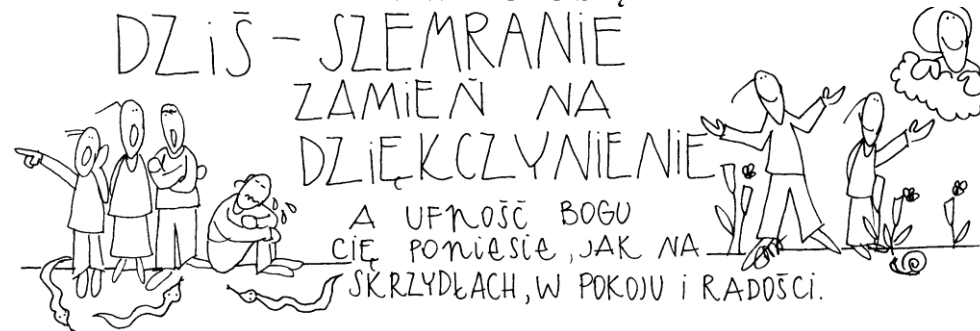 DZiŚ - SZEMRANIE
ZAMIEŃ NA
DZIĘKCZYNIENIE
A UFNOŚĆ BOGU
CIĘ PONIESIE, JAK NA
SKRZYDŁACH, W POKOJU i RADOŚCI.